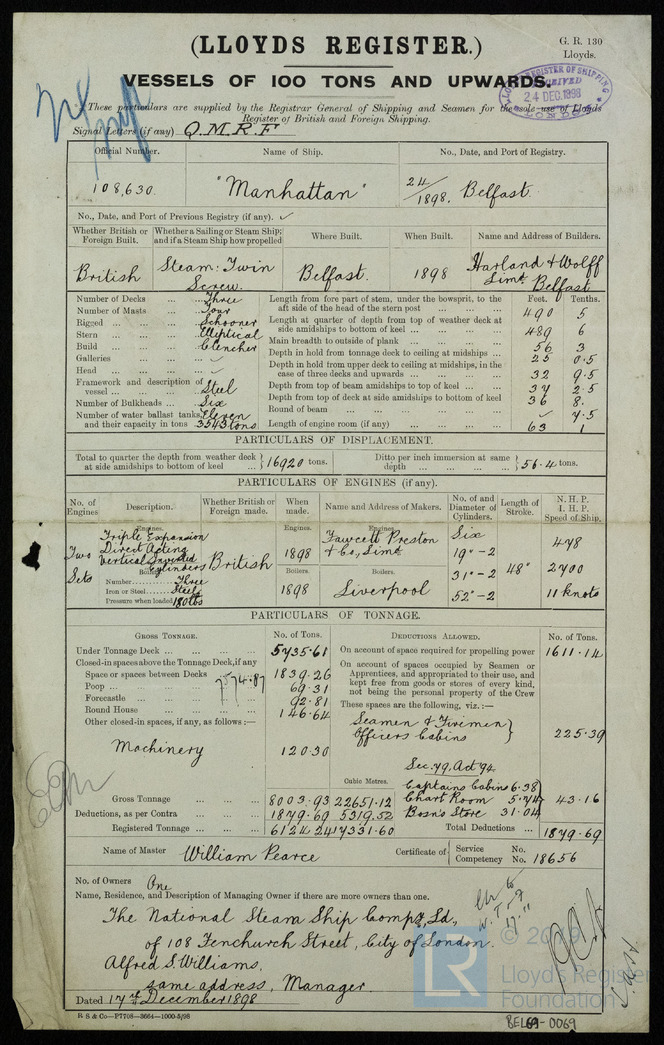 (LLOYDS REGISTER.)
G. R. 130
Lloyds.
VESSELS OF 100 TONS AND UPWARDS.
LLOYD'S REGISTER OF SHIPPING
RECEIVED
24 DEC. 1898
LONDON
These particulars are supplied by the Registrar General of Shipping and Seamen for the sole use of Lloyds
Register of British and Foreign Shipping.
Signal Letters (if any) Q.M.R.F.
Official Number. Name of Ship. No., Date, and Port of Registry.
108,630. "Manhattan" 24/1898. Belfast.
No., Date, and Port of Previous Registry (if any). ✓
Whether British or Foreign Built. Whether a Sailing or Steam Ship; and if a Steam Ship how propelled Where Built. When Built. Name and Address of Builders.
British Steam: Twin Screw. Belfast. 1898 Harland & Wolff Limd Belfast
Number of Decks ... ... Three
Number of Masts ... ... Four
Rigged ... ... ... Schooner
Stern ... ... ... Elliptical
Build ... ... ... Clencher
Galleries ... ... ✓
Head ... ... ... ✓
Framework and description of vessel ... ... ... Steel
Number of Bulkheads ... Six
Number of water ballast tanks, Eleven
and their capacity in tons 3543 tons
Feet. Tenths.
Length from fore part of stem, under the bowsprit, to the aft side of the head of the stern post ... ... 490 5
Length at quarter of depth from top of weather deck at side amidships to bottom of keel ... ... 489 6
Main breadth to outside of plank ... ... ... 56 3
Depth in hold from tonnage deck to ceiling at midships ... 25 0.5
Depth in hold from upper deck to ceiling at midships, in the case of three decks and upwards ... ... 32 9.5
Depth from top of beam amidships to top of keel ... ... 34 2.5
Depth from top of deck at side amidships to bottom of keel 36 8.
Round of beam ... ... ... ✓ 7.5
Length of engine room (if any) ... ... 63 1
PARTICULARS OF DISPLACEMENT.
Total to quarter the depth from weather deck at side amidships to bottom of keel ... } 16920 tons.
Ditto per inch immersion at same depth ... ... ... } 56.4 tons.
PARTICULARS OF ENGINES (if any).
No. of Engines Description. Whether British or Foreign made. When made. Name and Address of Makers. No. of and Diameter of Cylinders. Length of Stroke. N. H. P. I. H. P. Speed of Ship.
Engines. Engines. Engines.
Two Sets
Triple Expansion
Direct Acting
Vertical Inverted
Cylinders
British
1898
Fawcett Preston
& Co., Limd
Six
19" - 2
31" - 2
52" - 2
48"
478
2700
11 knots
Boilers. Boilers. Boilers.
Number......... Three
Iron or Steel..... Steel
Pressure when loaded 180 lbs
1898
Liverpool
PARTICULARS OF TONNAGE.
GROSS TONNAGE. No. of Tons. DEDUCTIONS ALLOWED. No. of Tons.
Under Tonnage Deck ... ... ... 5735.61
Closed-in spaces above the Tonnage Deck, if any
Space or spaces between Decks 1839.26
7574.87
Poop ... ... ... 69.31
Forecastle ... ... ... 92.81
Round House ... ... ... 146.64
Other closed-in spaces, if any, as follows:—
Machinery 120.30
On account of space required for propelling power 1611.14
On account of spaces occupied by Seamen or Apprentices, and appropriated to their use, and kept free from goods or stores of every kind, not being the personal property of the Crew
These spaces are the following, viz.:—
Seamen & Firemen }
Officers Cabins } 225.39
Sec. 79, Act 94
Captains Cabins 6.38
Chart Room 5.74
Bosn's Store 31.04
43.16
Cubic Metres.
Gross Tonnage ... ... ... 8003.93 22651.12
Deductions, as per Contra ... 1879.69 5319.52
Registered Tonnage ... ... 6124.24 17331.60
Total Deductions ... 1879.69
Name of Master William Pearce
Certificate of { Service No.
Competency No. 18656
No. of Owners One
Name, Residence, and Description of Managing Owner if there are more owners than one.
The National Steam Ship Compy, Ld.,
of 108 Fenchurch Street, City of London.
Alfred S. Williams,
same address, Manager.
Dated 17th December 1898
R S & Co—P7708—3664—1000-5/98
LR © 2019
Lloyd's Register
Foundation
BEL69-0069